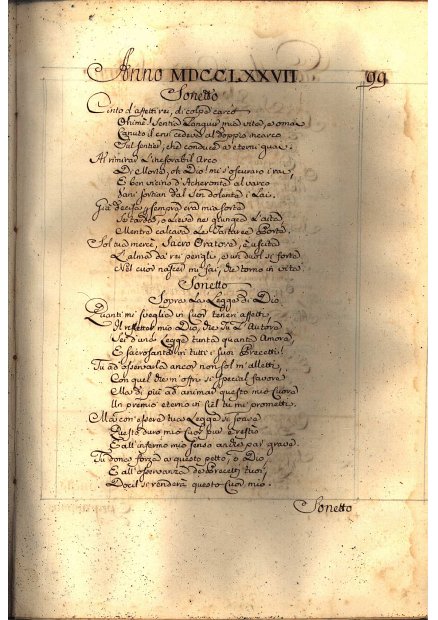 Anno MDCCLXXVII 99
Sonetto
Cinto d'affetti rei, di colpe carco
Ohimè! Sentia languir mia vita, e omai
Caputo il crin cedeva al doppio incarco
Sul sentier, che conduce a eterni guai.
Al rimirar l'inesorabil Arco
Di Morte, oh Dio! mi s'oscuraro i rai,
E ben vicino d'Acheronte al varco
sortian dal sen dolente i lai.
Già decisa per sempre era mia sorte
Se tarda, o lieve
Mentre calcava le Tartaree Porte.
Sol tua mercè, Sacro Oratore, è uscita
L'alma da' rei perigli, e un duol sì forte
Nel cuor nascer mi fai, che torno in vita.
Sonetto
Sopra la Legge di Dio
Quanti mi sveglia in cuor teneri affetti
Il riflettere mio Dio, che Tu l'Autore
Sei d'una Legge tutta quanta Amore
E sacrosanta in tutti i suoi Precetti!
Tu ad osservarla ancor non sol m'alletti,
Con quel che m'offri sì special favore
Ma di più ad animar questo mio Cuore
Un premio eterno in Ciel tu mi prometti.
Ma con essere tua Legge sì soave
Questo duro mio Cuor pur è restio
E all'infermo mio senso anche par grave.
Tu donca forza a questo petto, o Dio
E all'osservanza de' Precetti tuoi,
Docil si renderà questo Cuor mio.
Sonetto